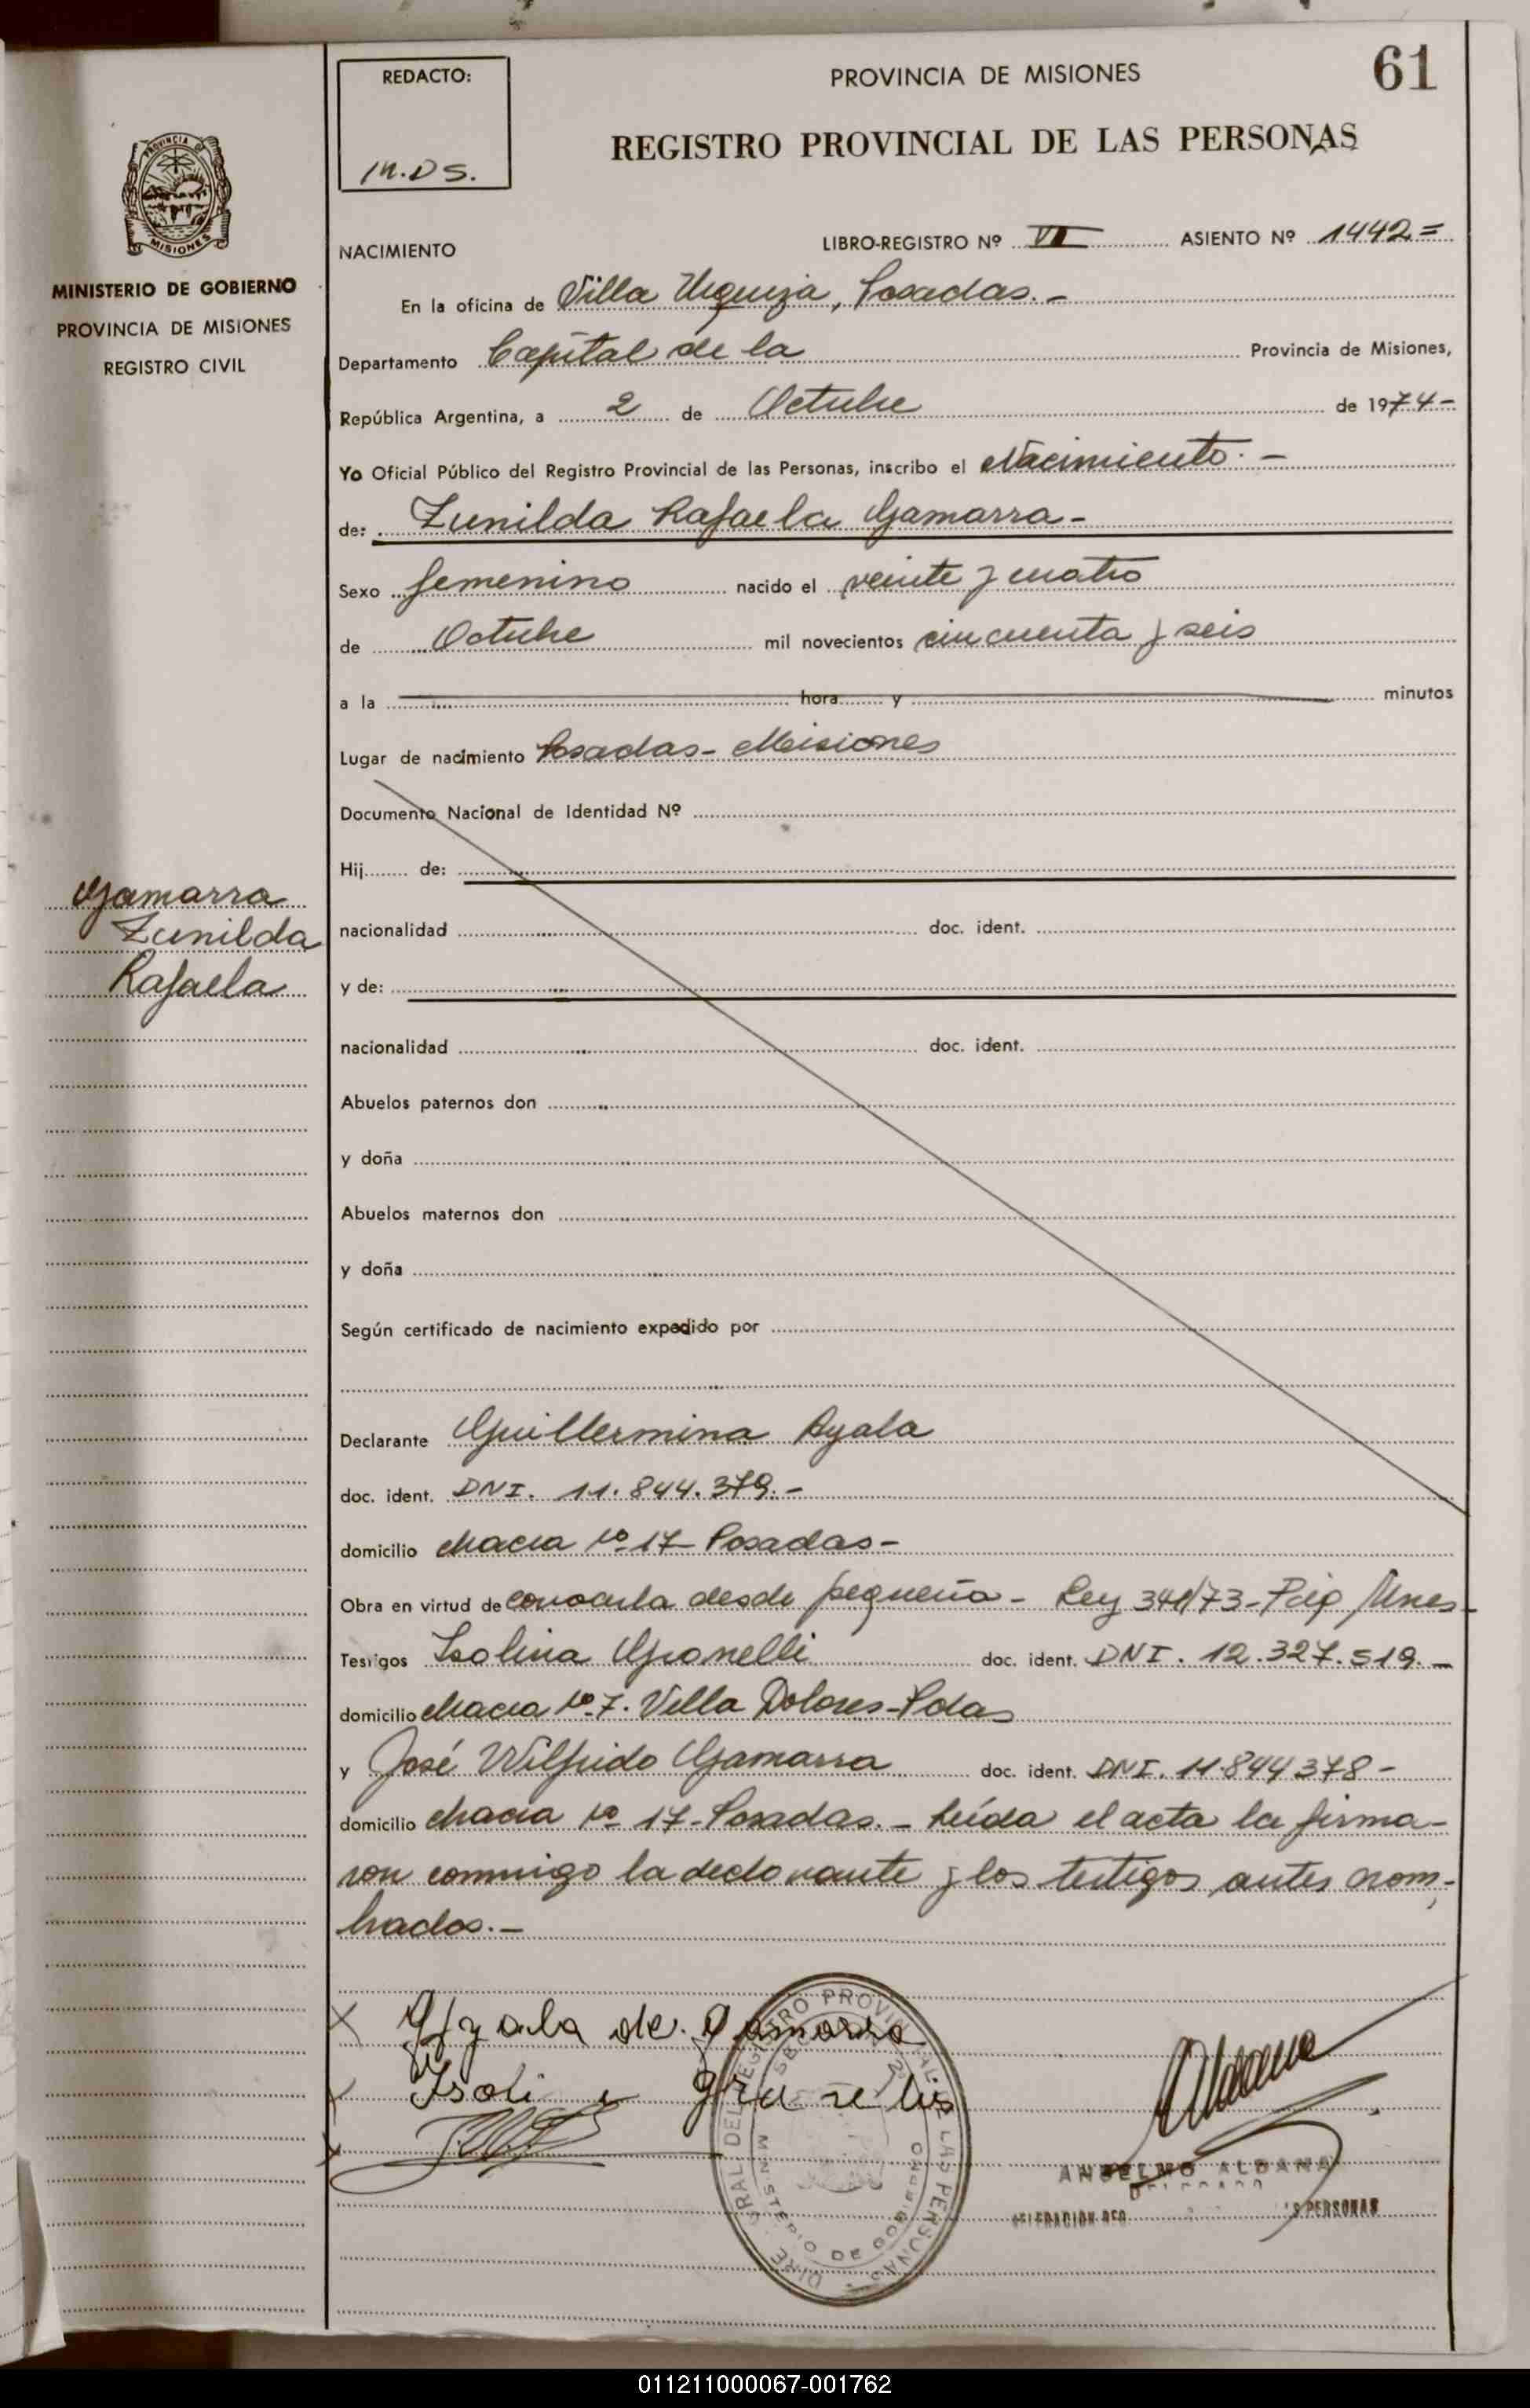 61
REDACTO:
M.DS.
PROVINCIA DE MISIONES
REGISTRO PROVINCIAL DE LAS PERSONAS
PROVINCIA DE
MISIONES
MINISTERIO DE GOBIERNO
PROVINCIA DE MISIONES
REGISTRO CIVIL
Gamarra
Zunilda
Rafaela
NACIMIENTO
LIBRO-REGISTRO Nº VII ASIENTO Nº 1442=
En la oficina de Villa Urquiza, Posadas.-
Departamento Capital de la Provincia de Misiones,
República Argentina, a 2 de Octubre de 1974-
Yo Oficial Público del Registro Provincial de las Personas, inscribo el Nacimiento.-
de: Zunilda Rafaela Gamarra-
Sexo femenino nacido el veinte y cuatro
de Octubre mil novecientos cincuenta y seis
a la hora y minutos
Lugar de nacimiento Posadas- Misiones
Documento Nacional de Identidad Nº
Hij de:
nacionalidad doc. ident.
y de:
nacionalidad doc. ident.
Abuelos paternos don
y doña
Abuelos maternos don
y doña
Según certificado de nacimiento expedido por
Declarante Guillermina Ayala
doc. ident. DNI. 11.844.379.-
domicilio chacra Nº 17- Posadas-
Obra en virtud de conocerla desde pequeña- Ley 341/73-
Testigos Isolina Granelli doc. ident. DNI. 12.327.519.-
domicilio chacra Nº 7. Villa Dolores-Pdas
y José Wilfrido Gamarra doc. ident. DNI. 11.844378-
domicilio chacra Nº 17-Posadas.- Leída el acta la firma-
ron conmigo la declarante y los testigos antes nom-
brados.-
X Ayala de Gamarra
X
X
ANSELMO ALDANA
PERSONAS
MINISTERIO DE GOBIERNO
011211000067-001762